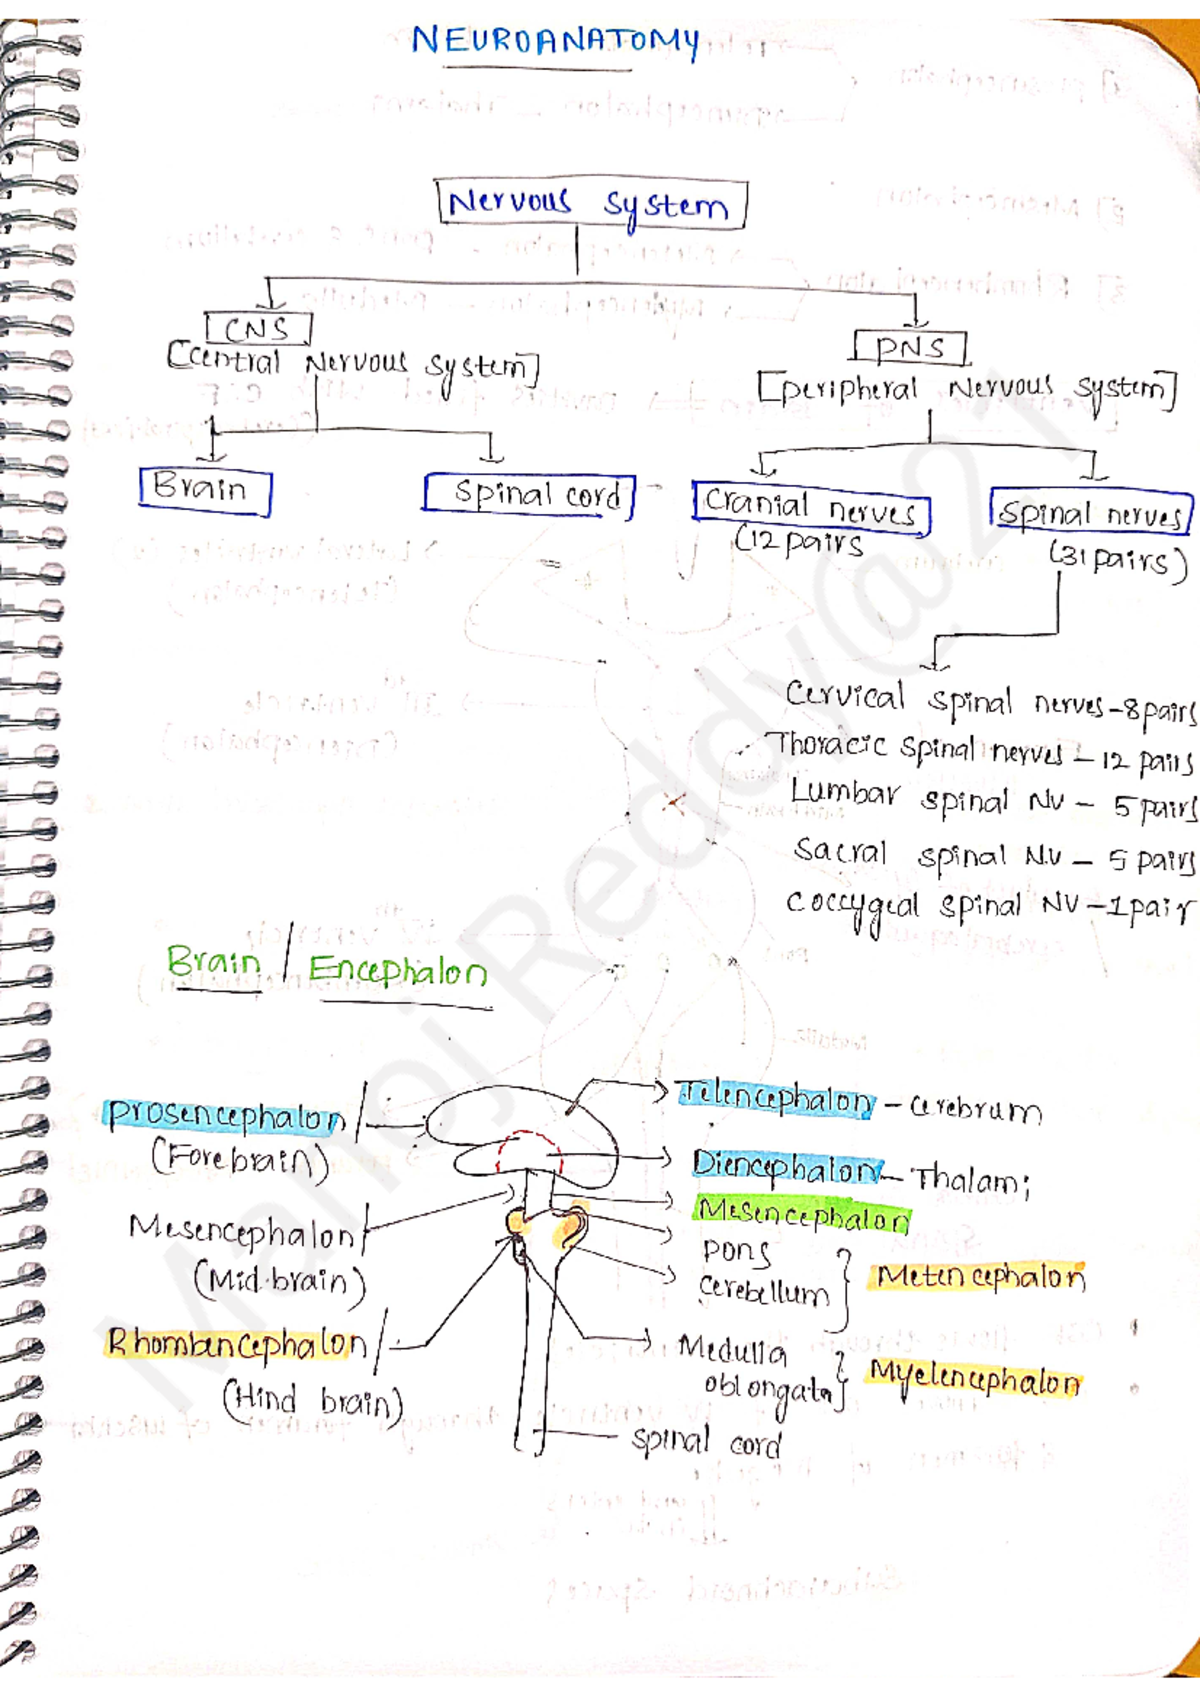 NEUROANATOMY
Nervous system
CNS
[Central Nervous system]
PNS
[peripheral Nervous system]
Brain
spinal cord
Cranial nerves
(12 pairs
spinal nerves
(31 pairs)
Cervical spinal nerves - 8 pairs
Thoracic spinal nerves - 12 pairs
Lumbar spinal NV - 5 pairs
Sacral spinal N.V - 5 pairs
Coccygeal spinal NV - 1 pair
Brain / Encephalon
prosencephalon
(Forebrain)
Mesencephalon
(Mid.brain)
Rhombencephalon
(Hind brain)
Telencephalon - cerebrum
Diencephalon - Thalami
Mesencephalon
pons
cerebellum
Metencephalon
Medulla
oblongata
Myelencephalon
spinal cord
Manoj Reddy@21